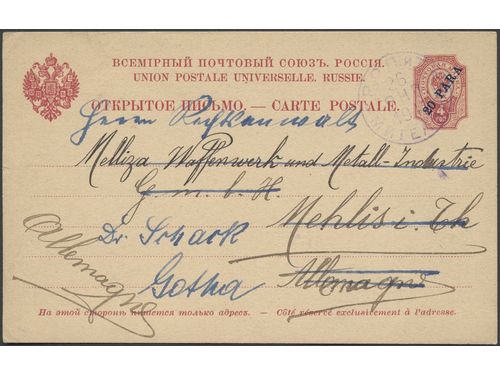 ВСЕМІРНЫЙ ПОЧТОВЫЙ СОЮЗЪ. РОССІЯ.
UNION POSTALE UNIVERSELLE. RUSSIE.
ОТКРЫТОЕ ПИСЬМО. — CARTE POSTALE.
20 PARA
Herrn Rechtsanwalt
Melliza Waffenwerk und Metall-Industrie
G. m. b. H.
Mehlis i. Th
Dr. Schack
Allemagne
Gotha
Allemagne
На этой сторонѣ пишется только адресъ. — Côté réservé exclusivement à l'adresse.